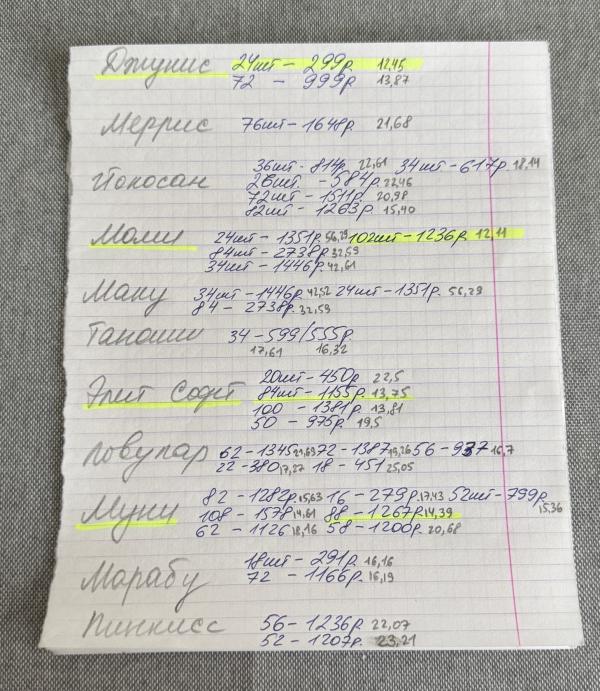 Джунис 24шт - 299р. 12,45
72 - 999р 13,87
Меррис 76шт - 1648р. 21,68
36шт - 814р. 22,61 34шт - 617р. 18,14
Йокосан 26шт. - 584р. 22,46
72шт - 1511р. 20,98
82шт - 1263р. 15,40
Моми 24шт - 1351р. 56,29 102шт - 1236р. 12,11
84шт - 2738р. 32,59
34шт - 1446р. 42,61
Маку 34шт - 1446р. 42,52 24шт - 1351р. 56,29
84 - 2738р. 32,59
Таноши 34 - 599/555р.
17,61 16,32
20шт - 450р 22,5
Элит Софт 84шт - 1155р. 13,75
100 - 1381р. 13,81
50 - 975р. 19,5
Ловулар 62 - 1345 21,69 72 - 1387 19,26 56 - 937 16,7
22 - 380 17,27 18 - 451 25,05
82 - 1282р. 15,63 16 - 279р. 17,43 52шт - 799р.
Муни 108 - 1578 14,61 88 - 1267р. 14,39 15,36
62 - 1126 18,16 58 - 1200р. 20,68
Марабу 18шт - 291р. 16,16
72 - 1166р. 16,19
Пинкисс 56 - 1236р. 22,07
52 - 1207р. 23,21